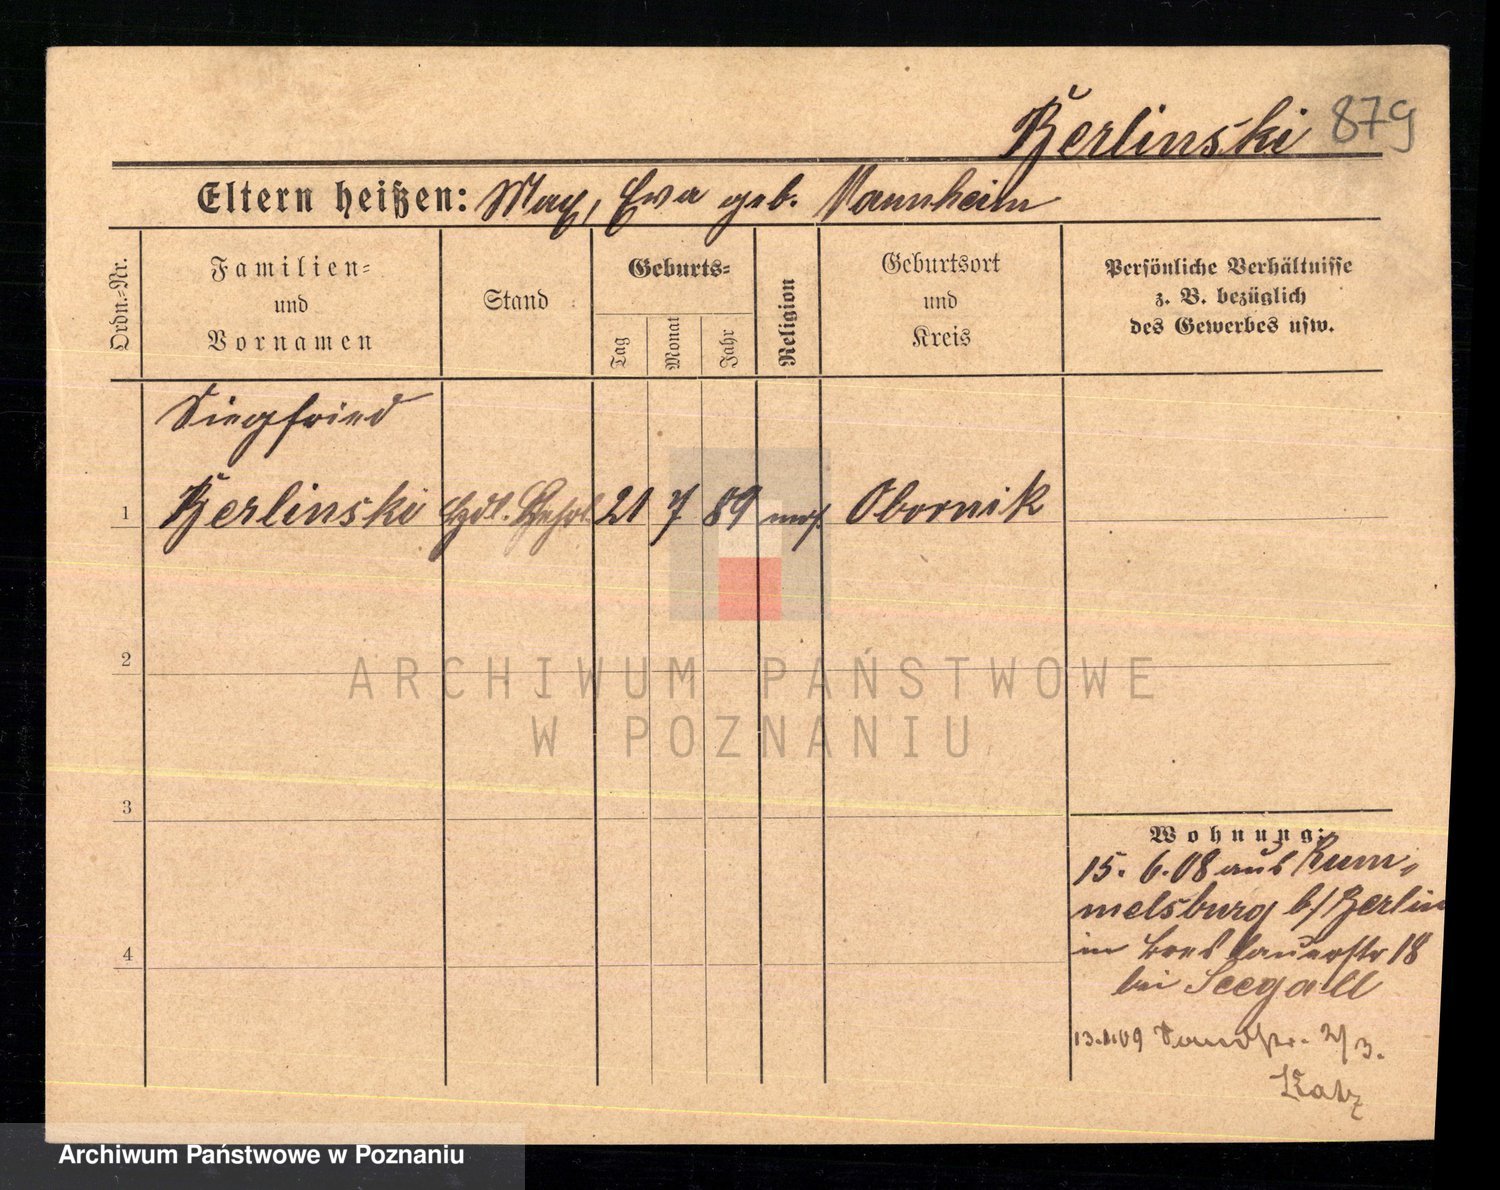 Berlinski 879
Eltern heißen: Max, Eva geb. Mannheim
Ordn.-Nr.
Familien-
und
Vornamen
Stand
Geburts-
Tag
Monat
Jahr
Religion
Geburtsort
und
Kreis
Persönliche Verhältnisse
z. B. bezüglich
des Gewerbes usw.
Siegfried
1 Berlinski Hdl. Gehrl. 21 7 89 mos. Obornik
2
3
4
Wohnung:
15. 6. 08 aus Rum-
melsburg b/Berlin
in Breslauerstr 18
bei Seegall
13.1.09 2/3.
Katz
ARCHIWUM PAŃSTWOWE
W POZNANIU
Archiwum Państwowe w Poznaniu